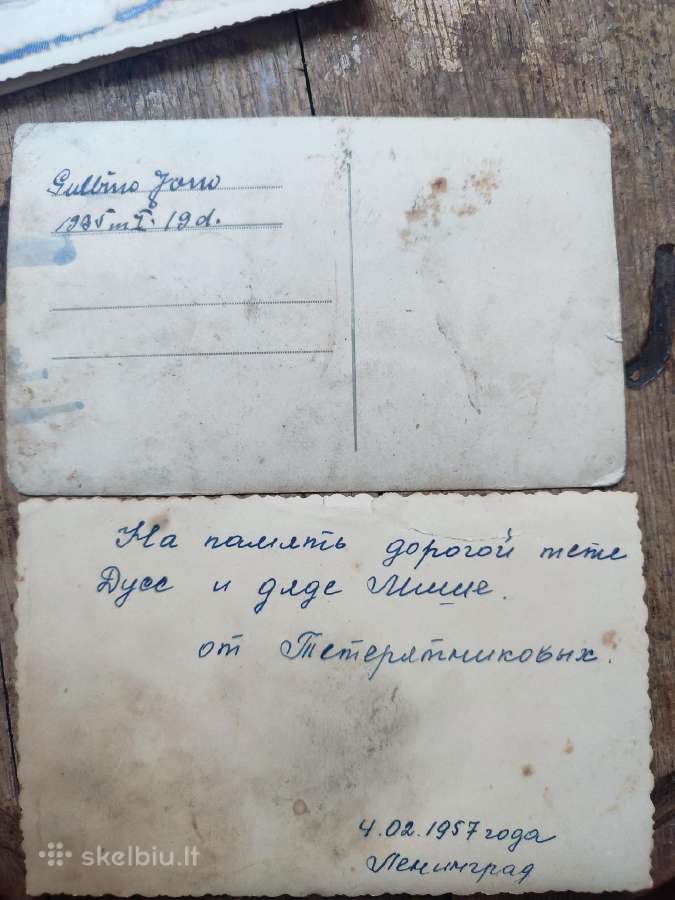 Gulbino Jono
1935 m I. 19 d.
На память дорогой тете
Дусе и дяде Мише.
от Тетерятниковых.
4.02.1957 года
Ленинград
skelbiu.lt